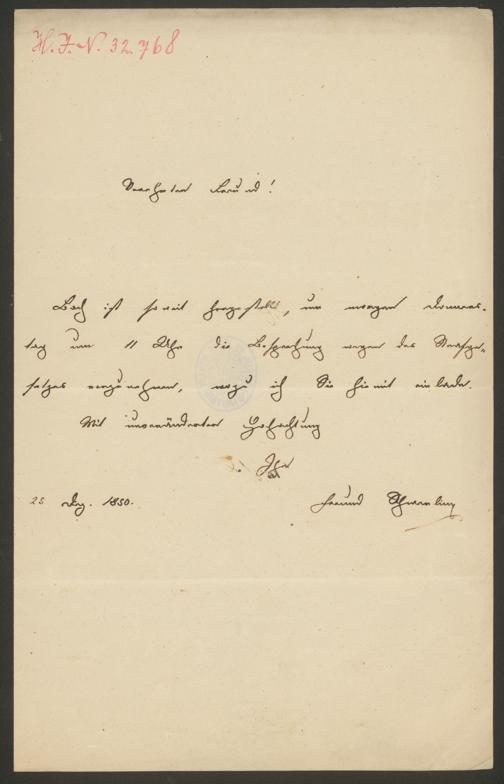 H. I. N. 32.768
Verehrter Freund!
Bach ist soweit hergestellt, um morgen Donners-
tag um 11 Uhr die Besprechung wegen des Strafge-
setzes vorzunehmen, wozu ich Sie hiemit einlade.
Mit unveränderter Hochachtung
Ihr
25 Dez. 1850.
Freund Schmerling